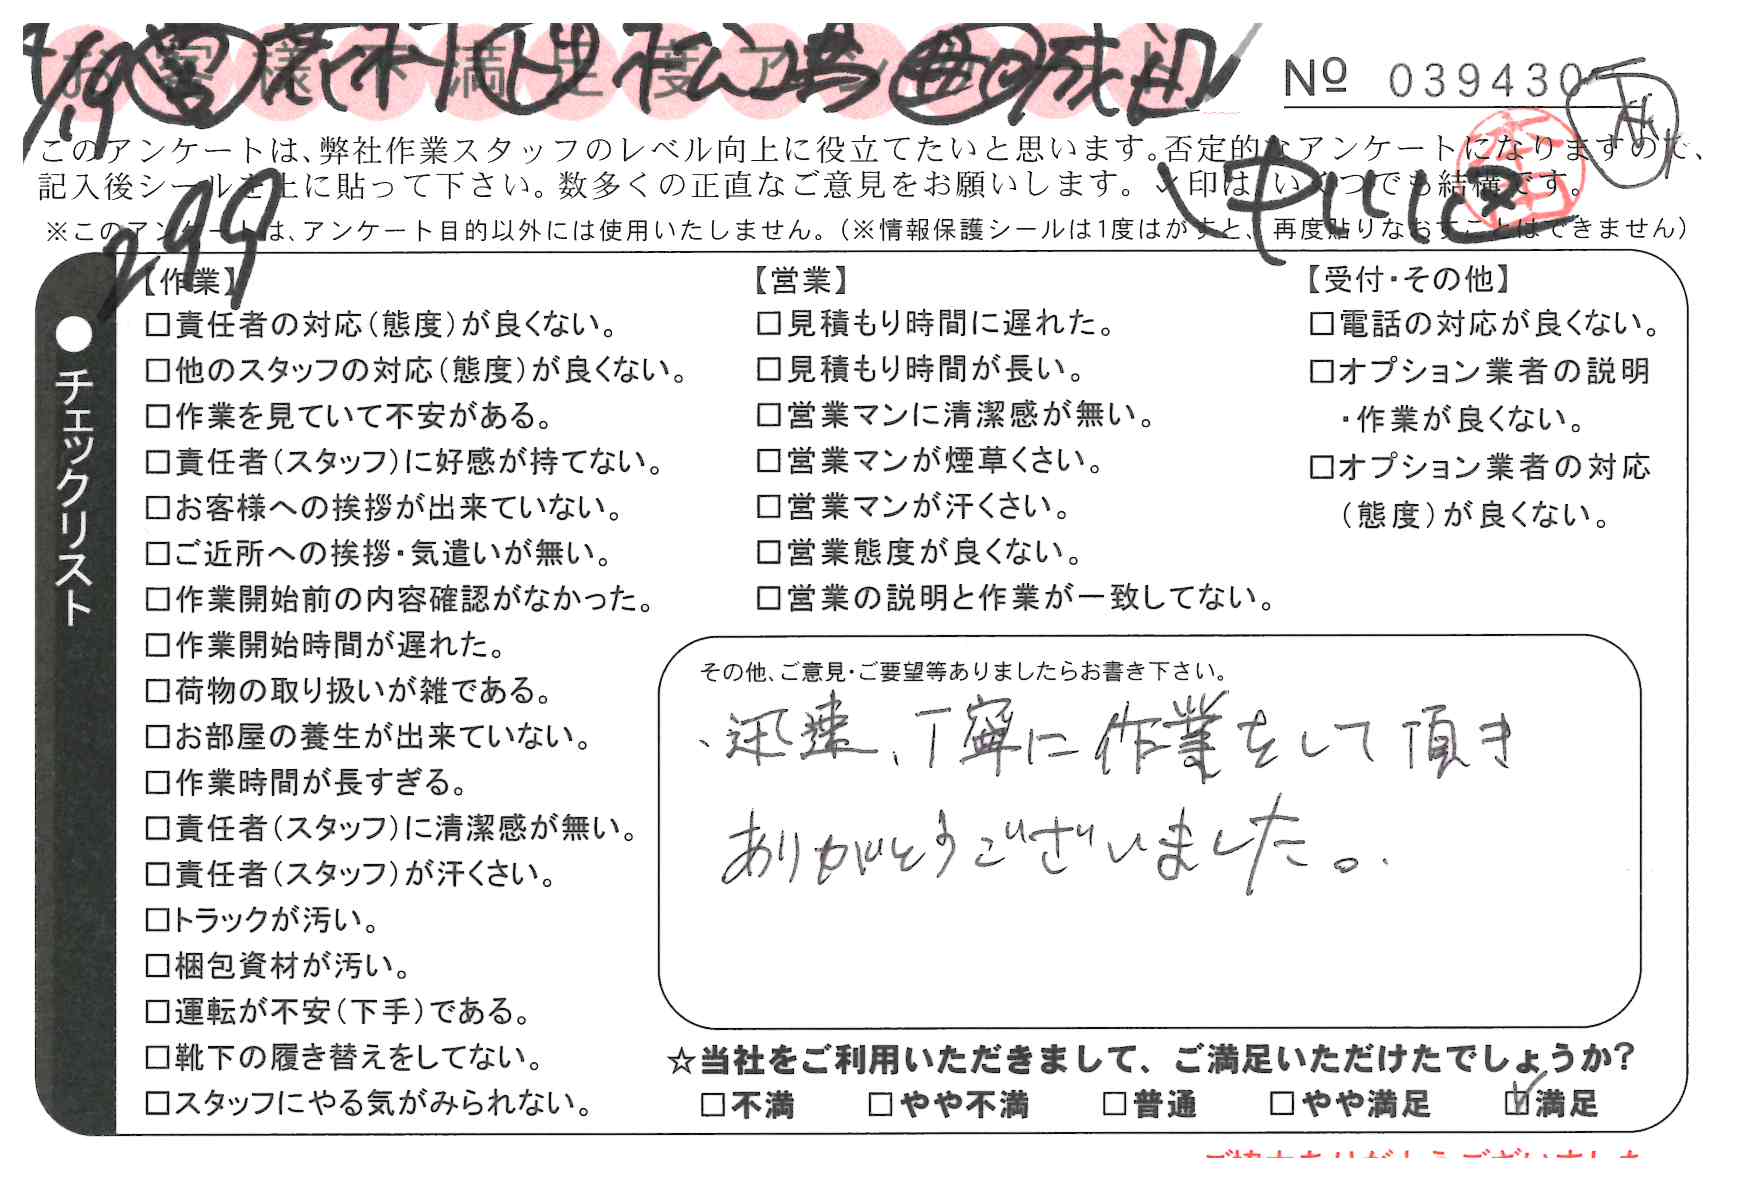 お客様不満足度アンケート
№ 039430
このアンケートは、弊社作業スタッフのレベル向上に役立てたいと思います。否定的なアンケートになりますので、
記入後シールを上に貼って下さい。数多くの正直なご意見をお願いします。✓印は、いくつでも結構です。
※このアンケートは、アンケート目的以外には使用いたしません。(※情報保護シールは1度はがすと、再度貼りなおすことはできません)
299
●チェックリスト
【作業】
□責任者の対応(態度)が良くない。
□他のスタッフの対応(態度)が良くない。
□作業を見ていて不安がある。
□責任者(スタッフ)に好感が持てない。
□お客様への挨拶が出来ていない。
□ご近所への挨拶・気遣いが無い。
□作業開始前の内容確認がなかった。
□作業開始時間が遅れた。
□荷物の取り扱いが雑である。
□お部屋の養生が出来ていない。
□作業時間が長すぎる。
□責任者(スタッフ)に清潔感が無い。
□責任者(スタッフ)が汗くさい。
□トラックが汚い。
□梱包資材が汚い。
□運転が不安(下手)である。
□靴下の履き替えをしてない。
□スタッフにやる気がみられない。
【営業】
□見積もり時間に遅れた。
□見積もり時間が長い。
□営業マンに清潔感が無い。
□営業マンが煙草くさい。
□営業マンが汗くさい。
□営業態度が良くない。
□営業の説明と作業が一致してない。
【受付・その他】
□電話の対応が良くない。
□オプション業者の説明
・作業が良くない。
□オプション業者の対応
(態度)が良くない。
その他、ご意見・ご要望等ありましたらお書き下さい。
、迅速、丁寧に作業をして頂き
ありがとうございました。
☆当社をご利用いただきまして、ご満足いただけたでしょうか?
□不満 □やや不満 □普通 □やや満足 ☑満足
ご協力ありがとうございました